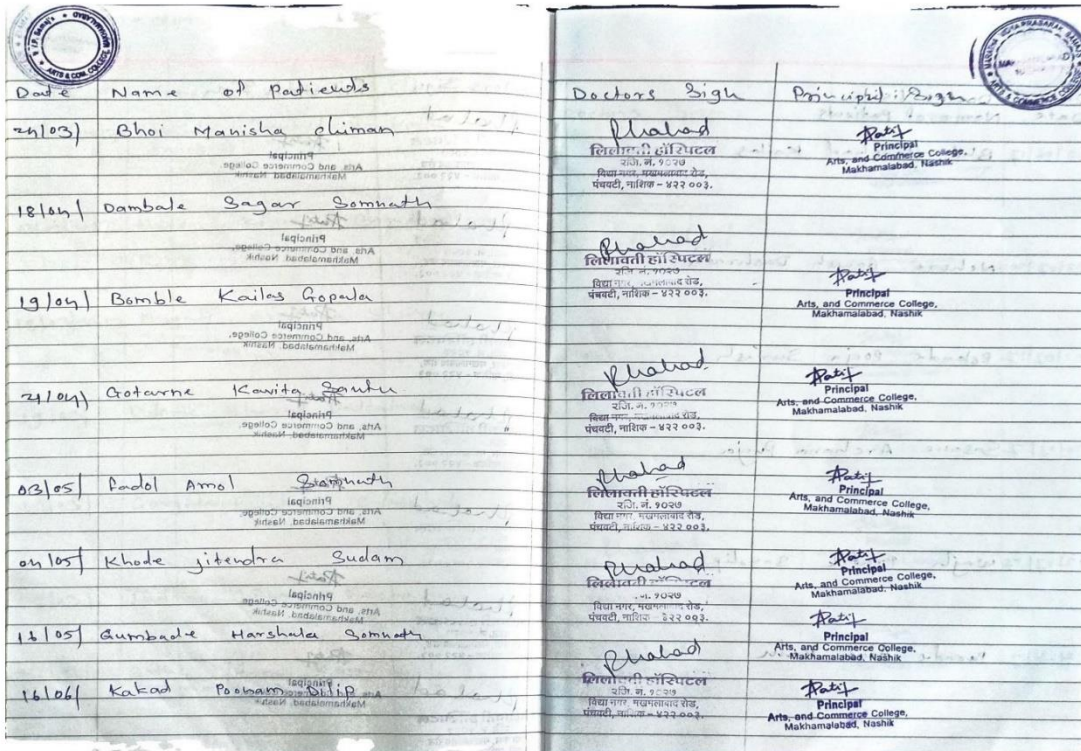 Date Name of Patients Doctors Sigh Principal Sigh
24/03/ Bhoi Manisha Chiman
Rhahad
लिलावती हॉस्पिटल
रजि. नं. १०२७
विद्या नगर, मखमलाबाद रोड,
पंचवटी, नाशिक – ४२२ ००३.
Patil
Principal
Arts, and Commerce College,
Makhamalabad, Nashik
18/04/ Dambale Sagar Somnath
Rhahad
लिलावती हॉस्पिटल
रजि. नं. १०२७
विद्या नगर, मखमलाबाद रोड,
पंचवटी, नाशिक – ४२२ ००३.
Patil
Principal
Arts, and Commerce College,
Makhamalabad, Nashik
19/04/ Bomble Kailas Gopala
Rhahad
लिलावती हॉस्पिटल
रजि. नं. १०२७
विद्या नगर, मखमलाबाद रोड,
पंचवटी, नाशिक – ४२२ ००३.
Patil
Principal
Arts, and Commerce College,
Makhamalabad, Nashik
21/04/ Gotarne Kavita Santu
Rhahad
लिलावती हॉस्पिटल
रजि. नं. १०२७
विद्या नगर, मखमलाबाद रोड,
पंचवटी, नाशिक – ४२२ ००३.
Patil
Principal
Arts, and Commerce College,
Makhamalabad, Nashik
03/05/ Fadol Amol Somnath
04/05/ Khode jitendra Sudam
Rhahad
लिलावती हॉस्पिटल
१०२७
विद्या नगर, मखमलाबाद रोड,
पंचवटी, नाशिक – ४२२ ००३.
Patil
Principal
Arts, and Commerce College,
Makhamalabad, Nashik
16/05/ Gumbade Harshala Somnath
Patil
Principal
Arts, and Commerce College,
Makhamalabad, Nashik
16/06/ Kakad Poonam Dilip
Rhahad
लिलावती हॉस्पिटल
रजि. नं. १०२७
विद्या नगर, मखमलाबाद रोड,
पंचवटी, नाशिक – ४२२ ००३.
Patil
Principal
Arts, and Commerce College,
Makhamalabad, Nashik